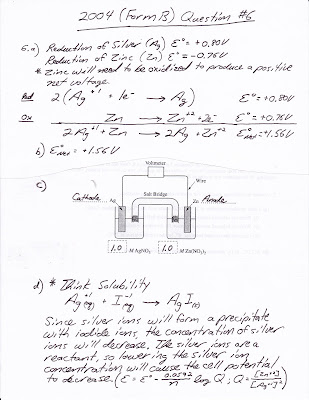 2004 (Form B) Question #6
6.a) Reduction of Silver (Ag) E° = +0.80V
Reduction of Zinc (Zn) E° = -0.76V
* Zinc will need to be oxidized to produce a positive
net voltage
Red 2(Ag+1 + 1e- → Ag) E° = +0.80V
Ox Zn → Zn+2 + 2e- E° = +0.76V
2Ag+1 + Zn → 2Ag + Zn+2 E°net = +1.56V
b) E°net = +1.56V
c)
Voltmeter
Wire
Salt Bridge
Cathode Ag Zn Anode
1.0 M AgNO3 1.0 M Zn(NO3)2
d) * Think Solubility
Ag+1(aq) + I-1(aq) → AgI(s)
Since silver ions will form a precipitate
with iodide ions, the concentration of silver
ions will decrease. The silver ions are a
reactant, so lowering the silver ion
concentration will cause the cell potential
to decrease. (E = E° - 0.0592/n log Q ; Q = [Zn+2]/[Ag+1]²)